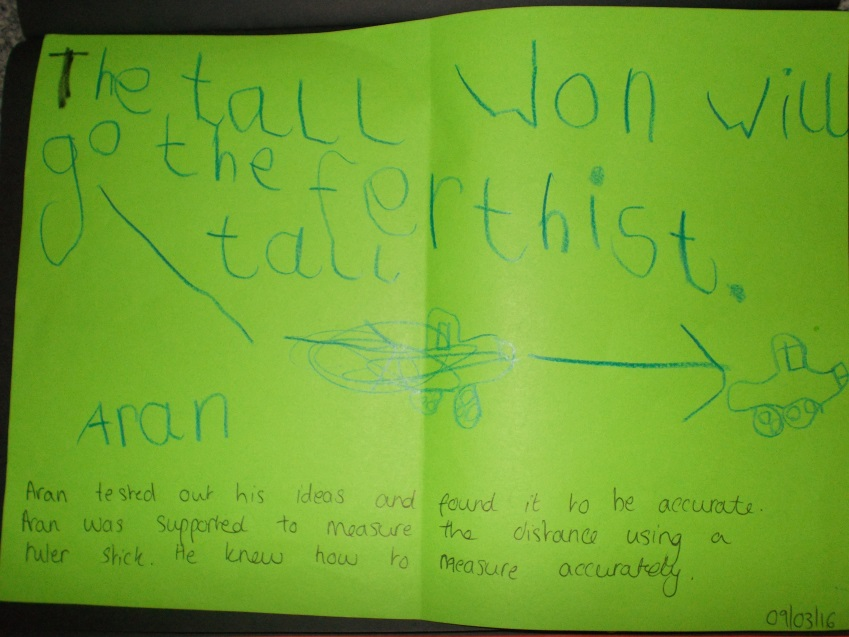 The tall won will
go the ferthist.
tall
Aran
Aran tested out his ideas and found it to be accurate.
Aran was supported to measure the distance using a
ruler stick. He knew how to measure accurately.
09/03/16